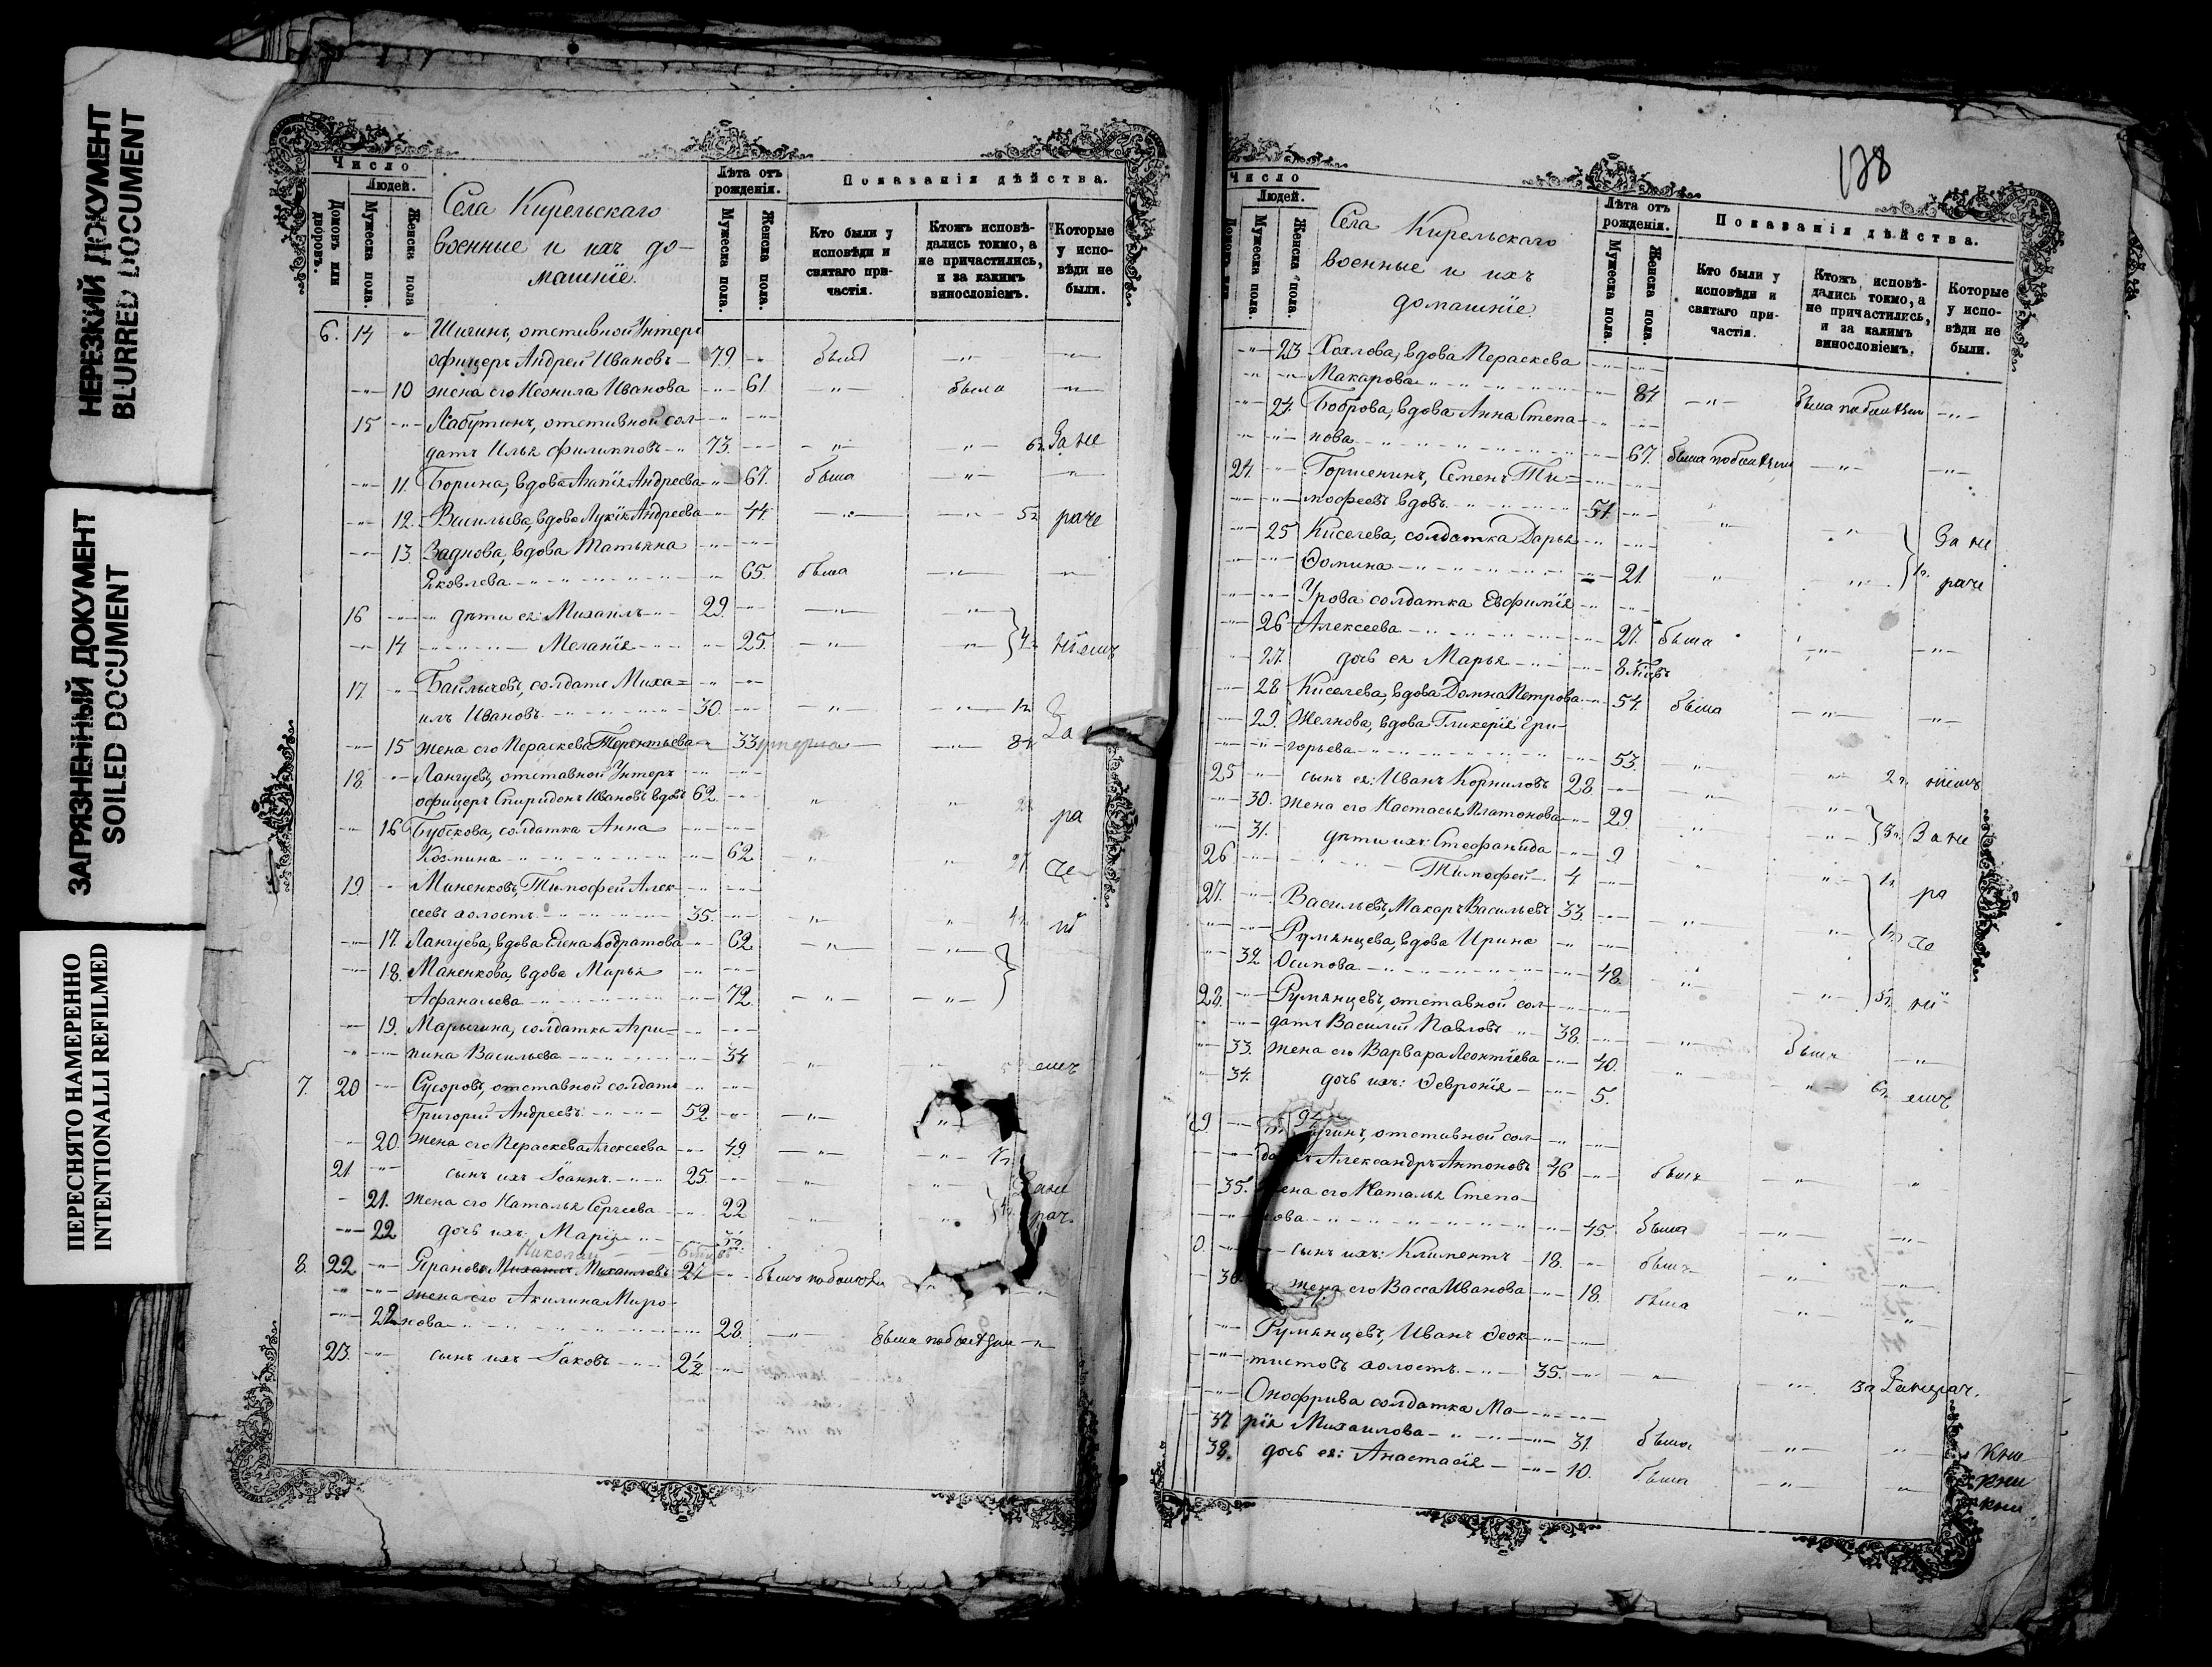 НЕРЕЗКИЙ ДОКУМЕНТ
BLURRED DOCUMENT
ЗАГРЯЗНЕННЫЙ ДОКУМЕНТ
SOILED DOCUMENT
ПЕРЕСНЯТО НАМЕРЕННО
INTENTIONALLI REFILMED
Число
Людей.
Домовъ или дворовъ.
Мужеска пола.
Женска пола
Села Кирельскаго
военные и ихъ до-
машніе.
Лѣта отъ рожденія.
Мужеска пола.
Женска пола.
Показанія дѣйства.
Кто были у исповѣди и святаго при-частія.
Ктожъ исповѣ-дались токмо, а не причастились, и за какимъ винословіемъ.
Которые у испо-вѣди не были.
6. 14 Шигинъ, отставной Унтеръ
офицеръ Андрей Ивановъ 79. былъ
10 жена его Неонила Иванова 61. была
15 Лабутинъ, отставной сол-
датъ Илья Филипповъ 73. За не
11. Борина, вдова Агапія Андреева 67. была
12. Васильева, вдова Лукія Андреева 44. раче
13. Заднова, вдова Татьяна
Яковлева 65. была
16 дѣти ея: Михаилъ 29.
14 Меланія 25. ніемъ
17. солдатъ Миха=
илъ Ивановъ 30.
15 жена его Пераскева Терентьева 33 умерла За
18. Лангуевъ, отставной Унтеръ
офицеръ Спиридонъ Ивановъ вдовъ 62.
16 солдатка Анна ра
Козмина 62
19. Маненковъ, Тимофей Алек- че
сеевъ холостъ 35.
17. Лангуева, вдова Елена Кодратова 62
18. Маненкова, вдова Марья
Афанасьева 72.
19. Марычина, солдатка Агри=
пина Васильева 34 емъ
7. 20 Сусоровъ, отставной солдатъ
Григорий Андреевъ 52
20. жена его Пераскева Алексеева 49
21 сынъ ихъ Іоаннъ 25.
21. жена его Наталья Сергеева 22 рач.
22 дочь ихъ: Марія
Николай
8. 22 Михаилъ Михаиловъ 27
жена его Акилина Миро-
22 нова 28.
23. сынъ ихъ Іаковъ 2½
128
Число
Людей.
Мужеска пола.
Женска пола.
Села Кирельскаго
военные и ихъ
домашніе.
Лѣта отъ рожденія.
Мужеска пола.
Женска пола.
Показанія дѣйства.
Кто были у исповѣди и святаго при-частія.
Ктожъ исповѣ-дались токмо, а не причастились, и за какимъ винословіемъ.
Которые у испо-вѣди не были.
23 Хохлова, вдова Пераскева
Макарова 84
24. Боброва, вдова Анна Степа-
нова 67.
24. Горшенинъ, Семенъ Ти=
мофеевъ вдовъ 51.
25 Киселева, солдатка Дарья За не
Фомина 21. раче
Урова солдатка Евфимія
26 Алексеева 27. была
27. дочь ея Марья 8
28 Киселева, вдова Домна Петрова 54. была
29. Желнова, вдова Гликерія Гри-
горьева 53.
25 сынъ ея: Иванъ Корниловъ 28. ніемъ
30. жена его Настасья Платонова 29
31. дѣти ихъ: Стефанида 9 За не
26 Тимофей 4
27. Васильевъ, Макаръ Васильевъ 33. ра
Румянцева, вдова Ирина че
32 Осипова 48.
28. Румянцевъ, отставной сол- ні
датъ Василий Павловъ 38.
33. жена его Варвара Леонтіева 40. былъ
34. дочь ихъ: Февронія 5. емъ
29 отставной сол-
Александръ Антоновъ 46 былъ
35. жена его Наталья Степа-
нова 45. была
сынъ ихъ: Климентъ 18. былъ
36 жена его Васса Иванова 18. была
Румянцевъ, Иванъ Феок-
тистовъ холостъ 35.
Онофрива солдатка Ма-
37 рія Михаилова 31. была
38. дочь ея: Анастасія 10. была